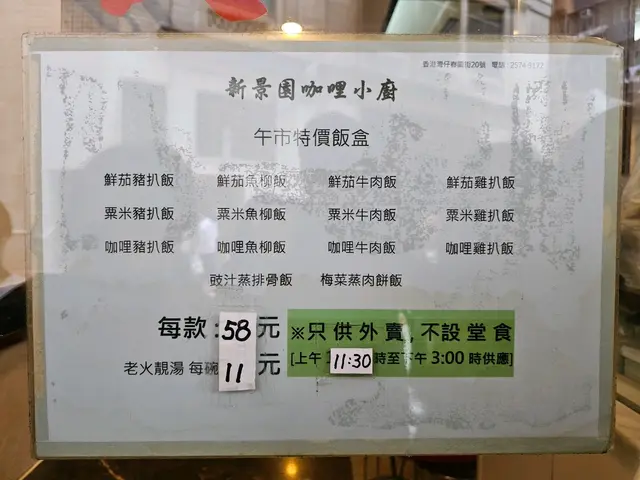 香港灣仔春園街20號 電話：2574 9172
新景園咖哩小廚
午市特價飯盒
鮮茄豬扒飯 鮮茄魚柳飯 鮮茄牛肉飯 鮮茄雞扒飯
粟米豬扒飯 粟米魚柳飯 粟米牛肉飯 粟米雞扒飯
咖哩豬扒飯 咖哩魚柳飯 咖哩牛肉飯 咖哩雞扒飯
豉汁蒸排骨飯 梅菜蒸肉餅飯
每款：58元 ※只供外賣，不設堂食
老火靚湯 每碗 11元 [上午 11:30 時至下午 3:00 時供應]